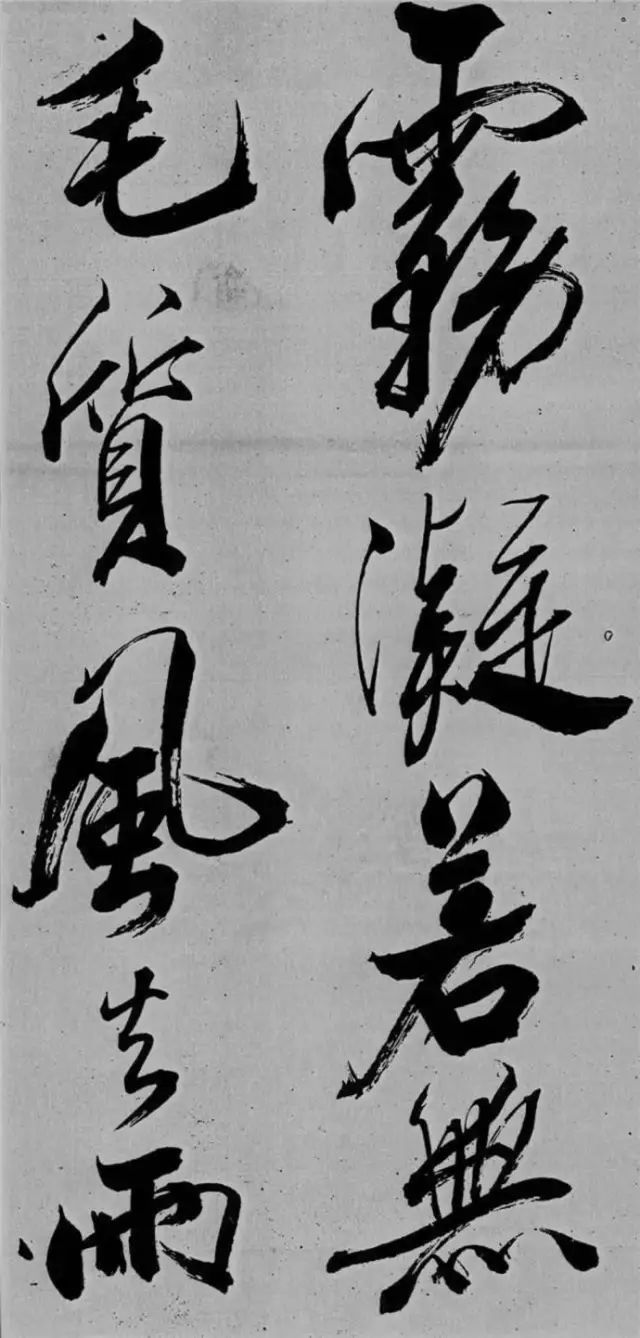 霧凝若無
毛質風去雨